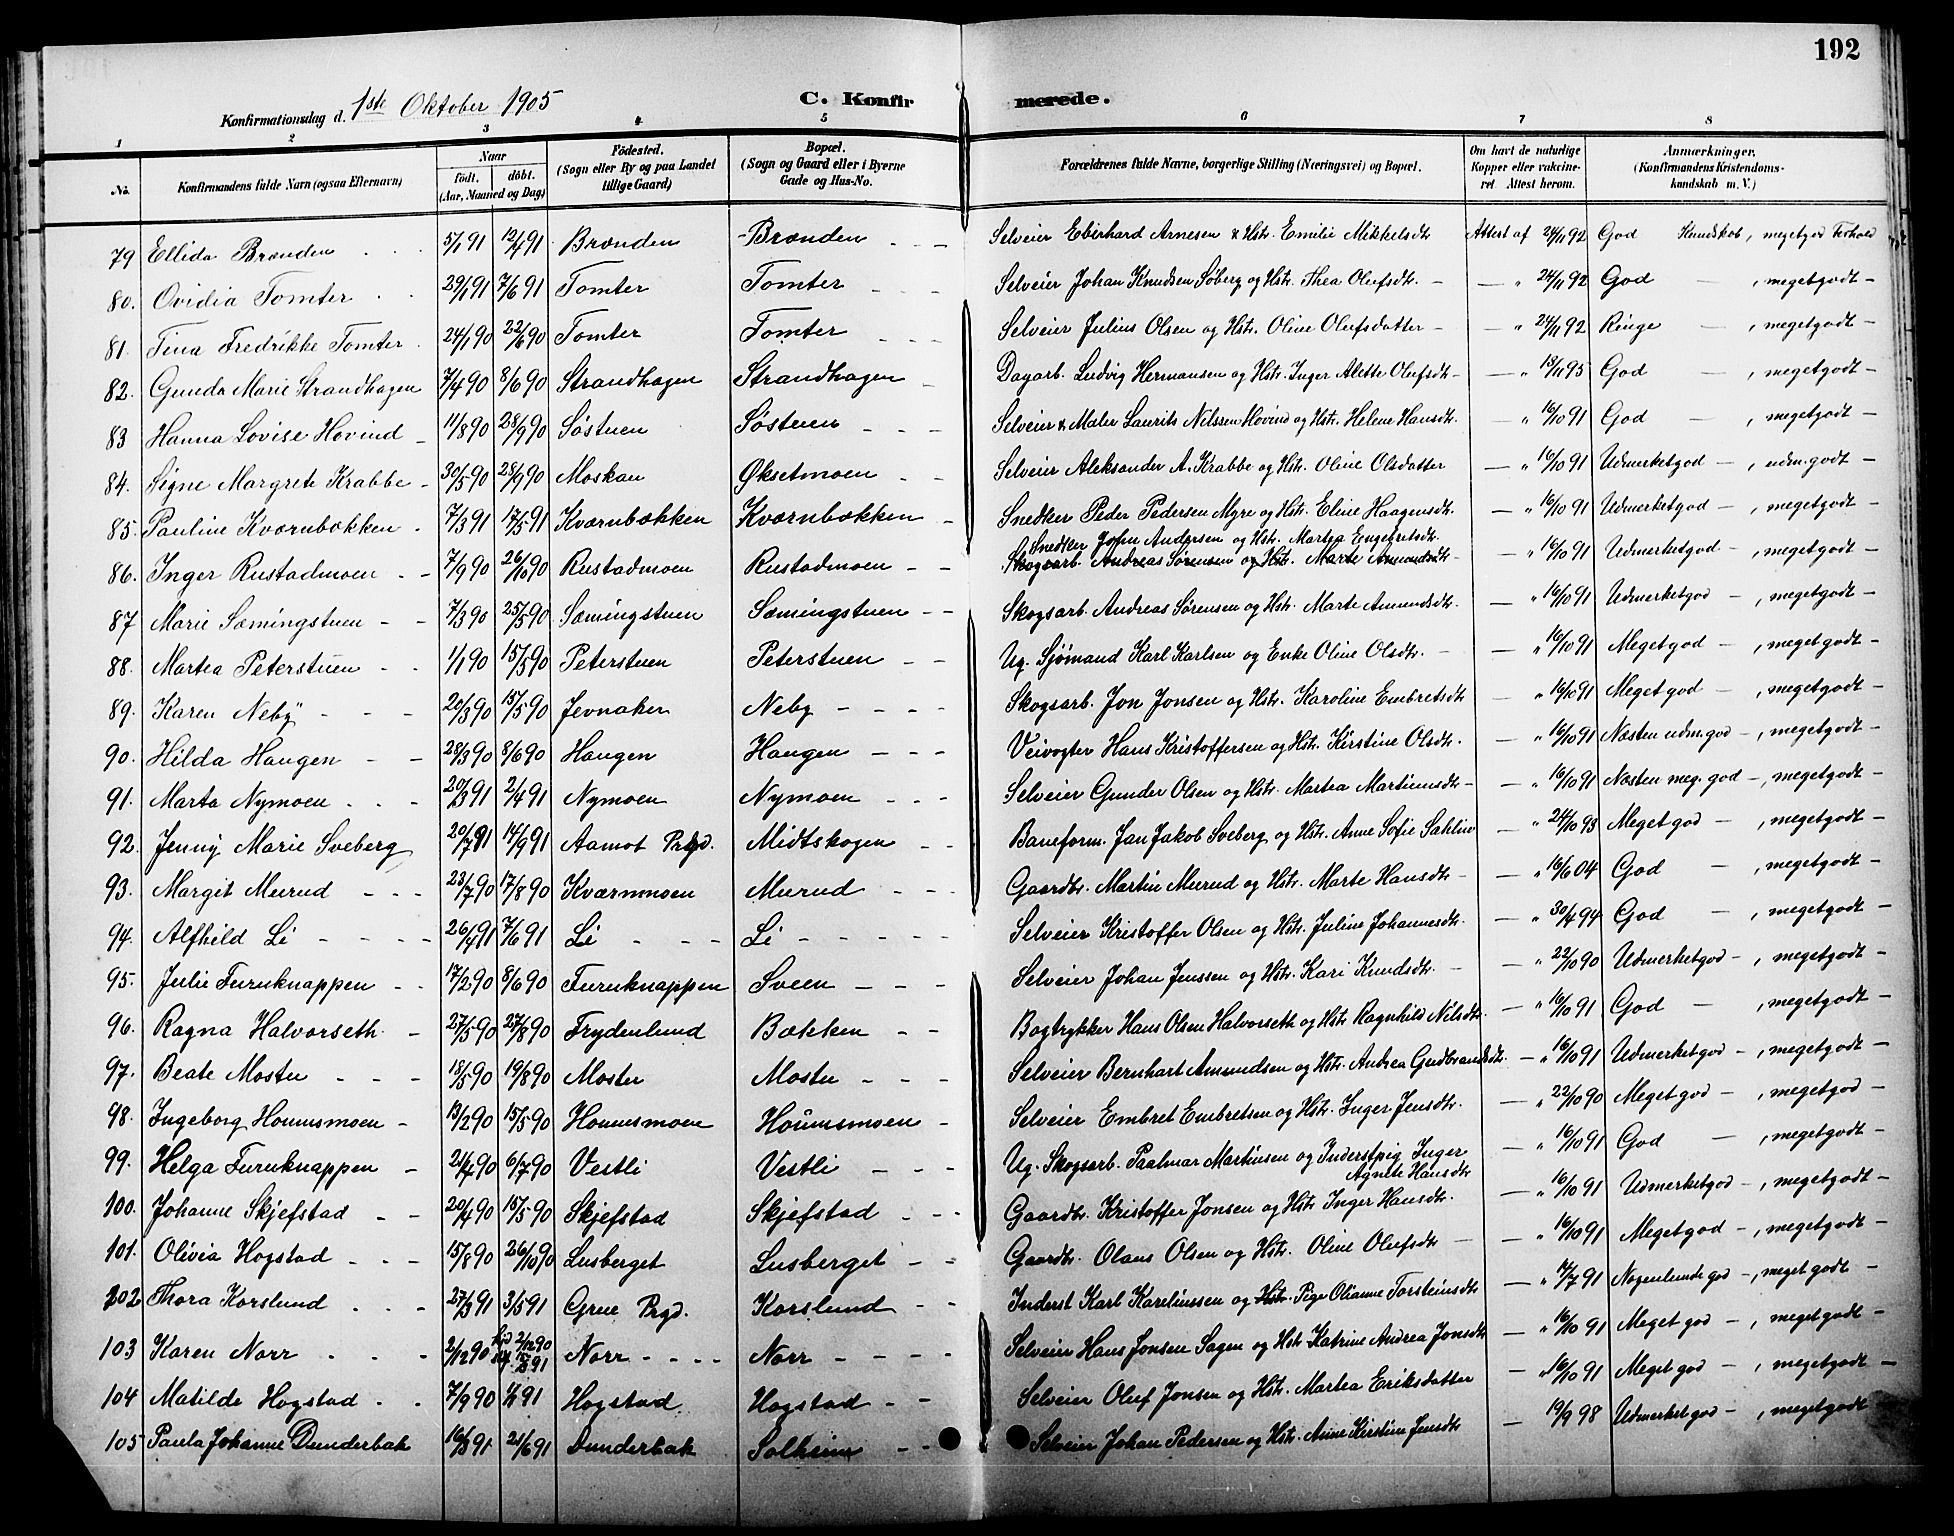 192
Konfirmationsdag d. 1ste Oktober 1905 C. Konfirmerede.
1 2 3 4 5 6 7 8
No. Konfirmandens fulde Navn (ogsaa Efternavn) Naar født. døbt. (Aar, Maaned og Dag) Fødested. (Sogn eller By og paa Landet tillige Gaard) Bopæl. (Sogn og Gaard eller i Byerne Gade og Hus-No. Forældrenes fulde Navne, borgerlige Stilling (Næringsvei) og Bopæl. Om havt de naturlige Kopper eller vakcineret. Attest herom. Anmærkninger, (Konfirmandens Kristendomskundskab m. V.)
79 Ellida Brænden 5/1 91 12/4 91 Brænden Brænden Selveier Eberhard Arnesen & Hstr. Emilie Mikkelsdtr Attest af 24/11 92 God Kundskab, megetgod Forhold
80. Ovidia Tomter 29/1 91 7/6 91 Tomter Tomter Selveier Johan Knudsen Søberg og Hstr. Thea Olufsdtr. — " 24/11 92 God — , megetgodt —
81. Tina Fredrikke Tomter 24/1 90 22/6 90 Tomter Tomter Selveier Julius Olsen og Hstr. Oline Olufsdatter — " 24/11 92 Ringe — , megetgodt —
82. Gunda Marie Strandhagen 7/4 90 8/6 90 Strandhagen Strandhagen Dagarb. Ludvig Hermansen og Hstr. Inger Alette Olufsdtr — " 18/11 95 God — , megetgodt —
83 Hanna Lovise Hovind 11/8 90 28/9 90 Søstuen Søstuen Selveier & Maler Laurits Nilssen Hovind og Hstr. Helene Hansdtr. — " 16/10 91 God — , megetgodt —
84. Signe Margrete Krabbe 30/5 90 28/9 90 Moskau Øksetmoen Selveier Aleksander A. Krabbe og Hstr. Oline Olsdatter — " 16/10 91 Udmerketgod — , udm.godt —
85. Pauline Kværnbækken 7/3 91 17/5 91 Kværnbækken Kværnbækken Snedker Peder Pedersen Myre og Hstr. Eline Haagensdtr. — " 16/10 91 Udmerketgod — , megetgodt —
Snedker John Andersen og Hstr. Martea Engebretsdtr.
86. Inger Rustadmoen 7/9 90 26/10 90 Rustadmoen Rustadmoen Skogsarb. Andreas Sørensen og Hstr. Marte Amundsdtr — " 16/10 91 Udmerketgod — , megetgodt —
87 Marie Sæmingstuen 7/3 90 25/5 90 Sæmingstuen Sæmingstuen Skogsarb. Andreas Sørensen og Hstr. Marte Amundsdtr. — " 16/10 91 Udmerketgod — , megetgodt —
88. Martea Peterstuen 1/1 90 15/5 90 Peterstuen Peterstuen Ug. Sjømand Karl Karlsen og Enke Oline Olsdtr. — " 16/10 91 Megetgod — , megetgodt —
89. Karen Neby 20/3 90 15/5 90 Jevnaker Neby Skogsarb. Jon Jonsen og Hstr. Karoline Embretsdtr " 16/10 91 Megetgod — , megetgodt —
90. Hilda Haugen 28/3 90 8/6 90 Haugen Haugen Veivogter Hans Kristoffersen og Hstr. Kirstine Olsdtr. — " 16/10 91 Næsten udm.god — , megetgodt —
91. Marta Nymoen 20/3 91 2/4 91 Nymoen Nymoen Selveier Gunder Olsen og Hstr. Martea Martinusdtr — " 16/10 91 Næsten meg. god — , megetgodt —
92. Jenny Marie Sveberg 20/7 91 14/9 91 Aamot Prgd. Midtskogen Baneform. Jan Jakob Sveberg og Hstr. Anne Sofie Sahlin — " 24/10 93 Megetgod — , megetgodt —
93. Margit Murud 23/7 90 17/8 90 Kværnmoen Murud Gaardbr. Martin Murud og Hstr. Marte Hansdtr — " 16/6 04 God — , megetgodt —
94. Alfhild Li 26/4 91 7/6 91 Li Li Selveier Kristoffer Olsen og Hstr. Juline Johannesdtr. — " 30/4 94 God — , megetgodt —
95. Julie Furuknappen 17/2 90 8/6 90 Furuknappen Sveen Selveier Johan Jenssen og Hstr. Kari Knudsdtr. — " 22/10 90 Udmerketgod — , megetgodt —
96. Ragna Halvorseth 27/5 90 25/8 90 Frydenlund Bækken Bogtrykker Hans Olsen Halvorseth og Hstr Ragnhild Nilsdtr. — " 16/10 91 God — , megetgodt —
97. Beate Moster 18/5 90 19/8 90 Moster Moster Selveier Bernhart Amundsen og Hstr. Andrea Gudbrandsdtr. — " 16/10 91 Udmerketgod — , megetgodt —
98. Ingeborg Hommsmoen 13/2 90 15/5 90 Hommsmoen Hommsmoen Selveier Embret Embretsen og Hstr. Inger Jensdtr. — " 22/10 90 Megetgod — , megetgod —
99. Helga Furuknappen 21/4 90 6/7 90 Vestli Vestli Ug. Skogsarb. Paalmar Martinsen og Inderstpig Inger — " 16/10 91 God — , megetgodt —
Agnete Hansdtr
100. Johanne Skjefstad 20/4 90 15/5 90 Skjefstad Skjefstad Gaardbr. Kristoffer Jonsen og Hstr. Inger Hansdtr. — " 16/10 91 Udmerketgod — , megetgodt —
101. Olivia Hogstad 15/8 90 26/10 90 Lusberget Lusberget Gaardbr. Olaus Olsen og Hstr. Oline Olufsdtr — " 16/10 91 Megetgod — , megetgodt —
202 Thora Korslund 27/3 91 3/5 91 Grue Prgd. Korslund Inderst Karl Karelinssen og Hstr. Pige Olianne Torsteinsdtr — " 17/7 91 Nogenlunde god — , meget godt —
103 Karen Norr 2/12 90 2/12 90 91 Norr Norr Selveier Hans Jonsen Sagen og Hstr Katrine Andrea Jonsdtr — " 16/10 91 Meget god — , megetgodt —
104 Matilde Hogstad 7/9 90 91 Hogstad Hogstad Selveier Oluf Jonsen og Hstr. Martea Eriksdatter — " 16/10 91 Meget god — , megetgodt —
105 Paula Johanne Dunderbak 16/3 91 21/6 91 Dunderbak Solheim Selveier Johan Pedersen og Hstr. Anne Kirstine Jensdtr — 19/9 98 Udmerketgod — , megetgodt —